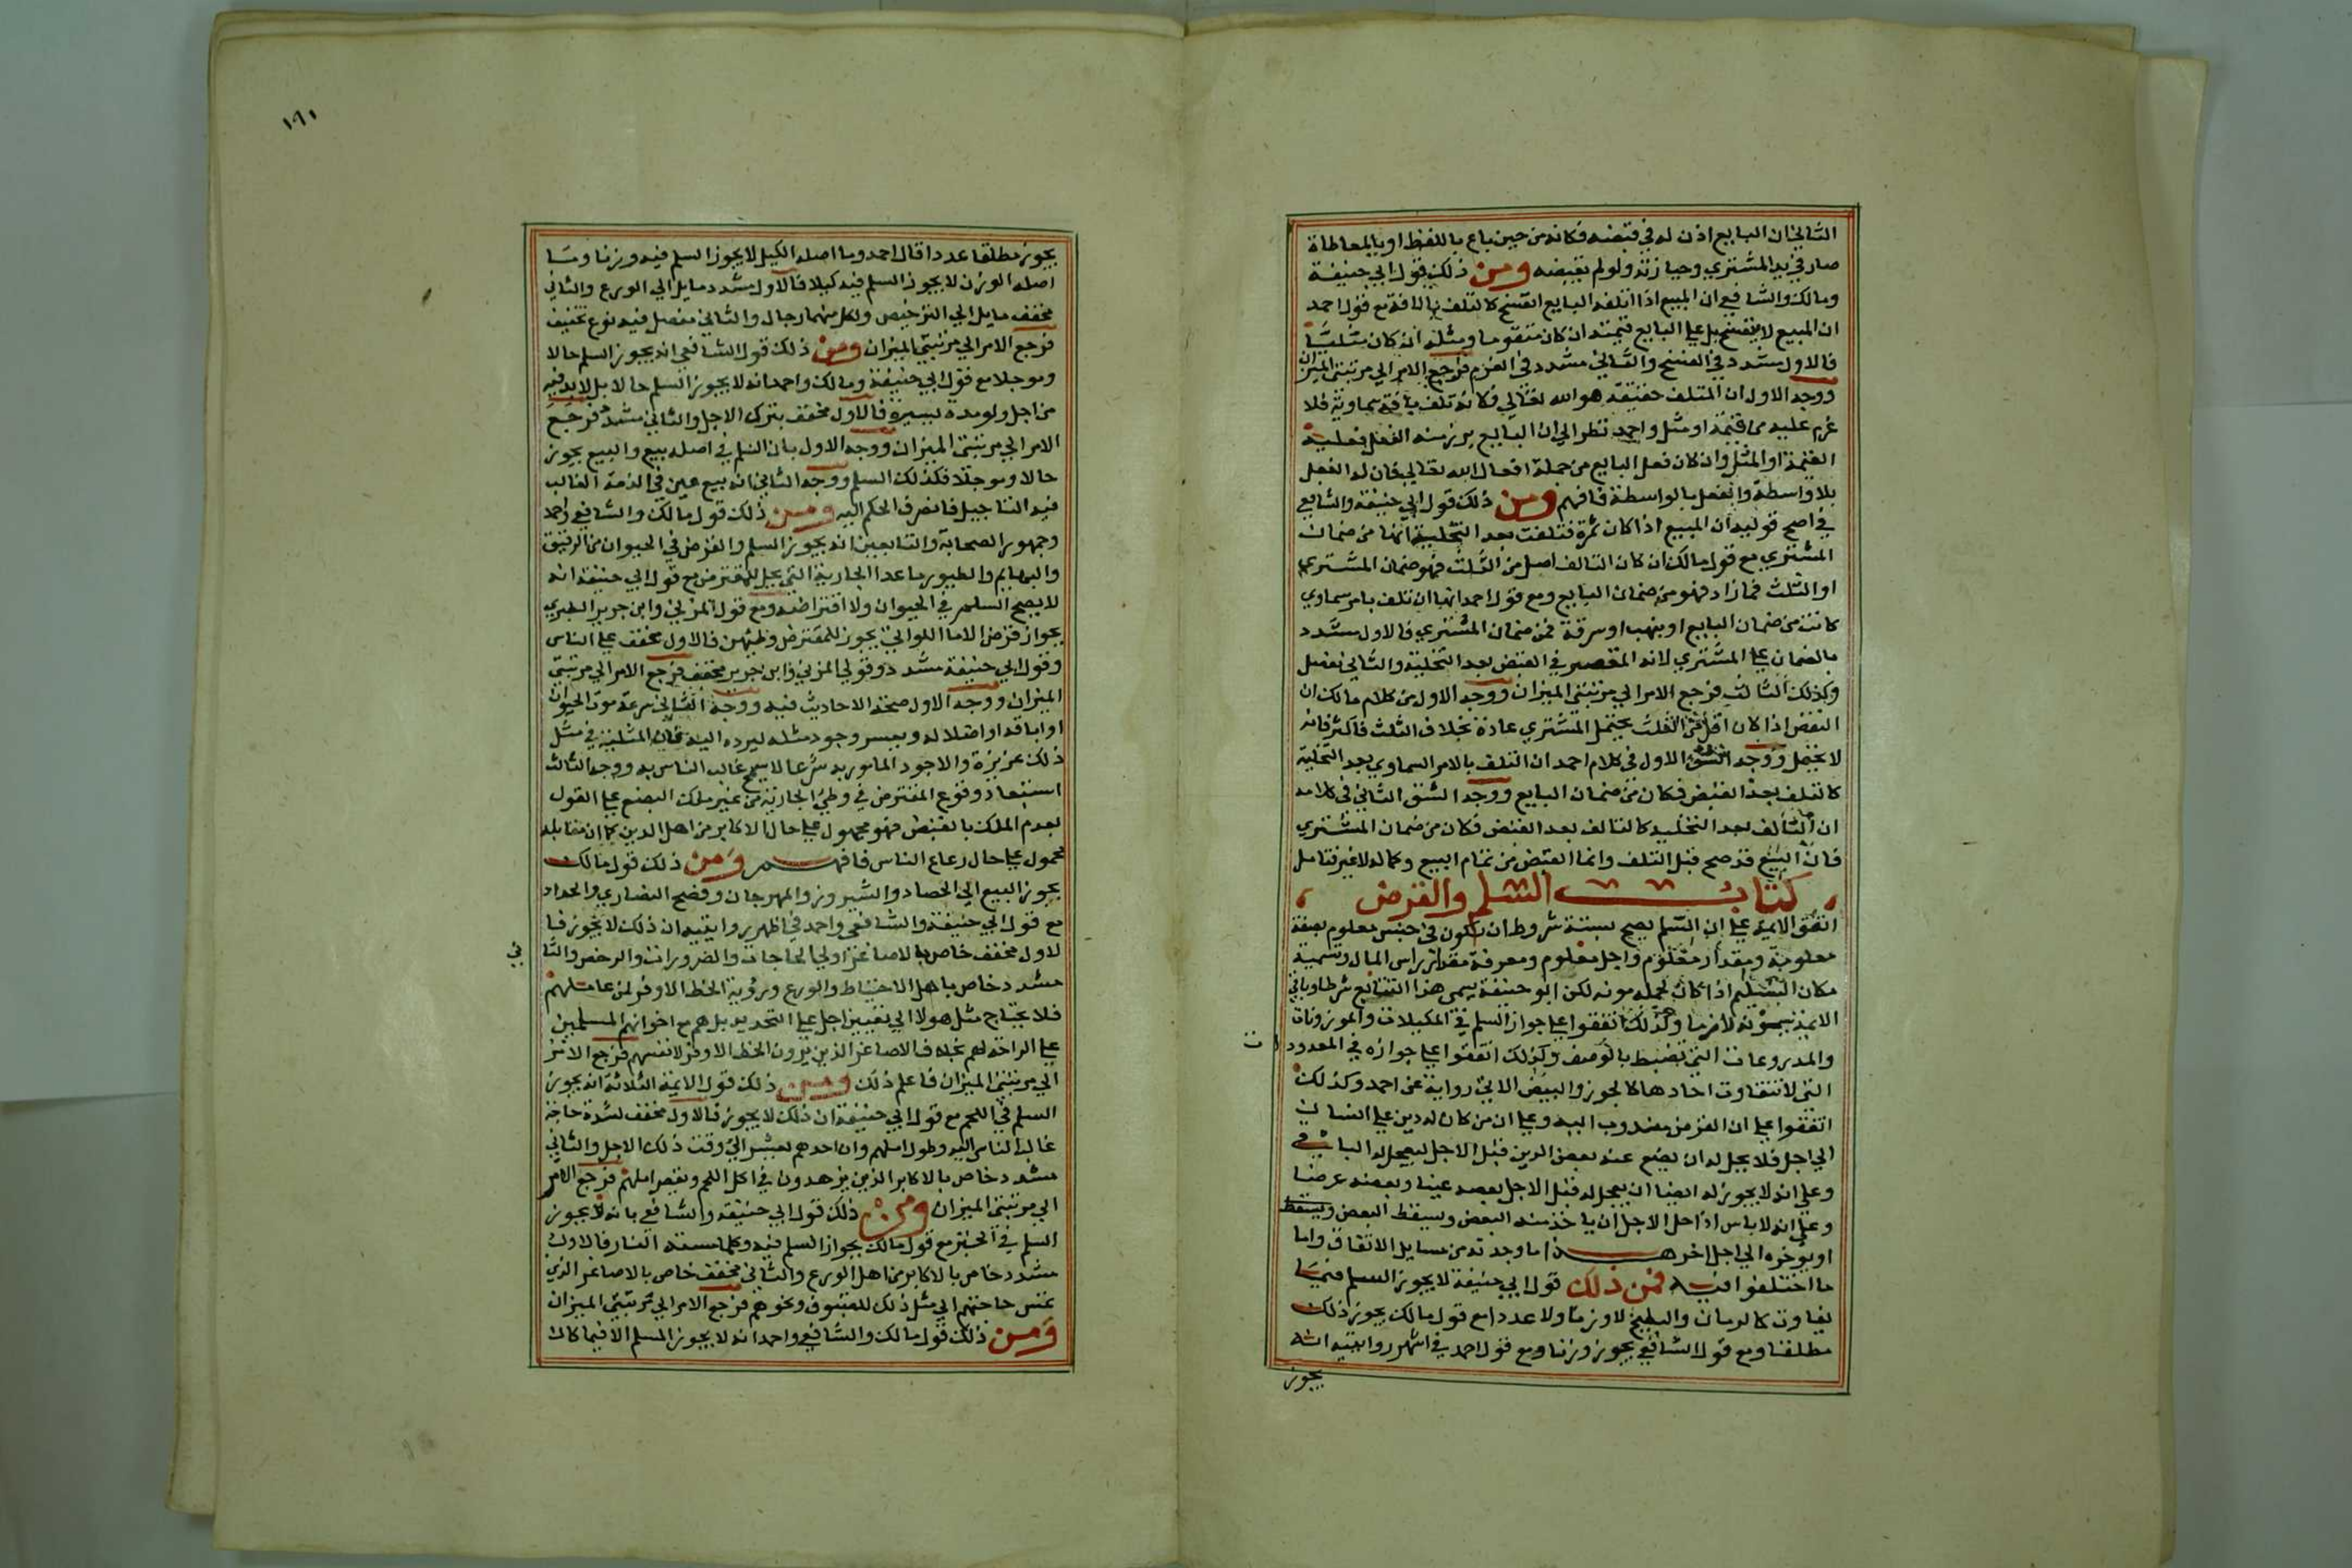 الثاني ان البايع اذن له في قبضه فكانه من حين باع باللفظ او بالمعاطاة
صار في يد المشتري وحيازته ولو لم يقبضه ومن ذلك قول ابي حنيفة
ومالك والشافعي ان المبيع اذا اتلفه البايع انفسخ كالتلف بالافة مع قول احمد
ان المبيع لا ينفسخ بل علي البايع قيمته ان كان متقوما ومثله ان كان مثليا
فالاول مشدد في الفسخ والثاني مشدد في الغرم فرجع الامر الي مرتبتي الميزان
ووجه الاول ان المتلف حقيقة هو الله تعالي فكانه تلف بآفة سماوية فلا
غرم عليه من قيمة او مثل واحمد نظر الي ان البايع برز منه الفعل فعليه
القيمة او المثل وان كان فعل البايع من جملة افعال الله تعالي فان له الفعل
بلا واسطة والفعل بالواسطة فافهم ومن ذلك قول ابي حنيفة والشافعي
في اصح قوليه ان المبيع اذا كان ثمرة فتلفت بعد التخلية انها من ضمان
المشتري مع قول مالك ان كان التالف اصل من الثلث فهو ضمان المشتري
او الثلث فما زاد فهو من ضمان البايع ومع قول احمد انها ان تلف بامر سماوي
كانت من ضمان البايع او بنهب او سرقة فمن ضمان المشتري فالاول مشدد
بالضمان علي المشتري لانه المقصر في القبض بعد التخلية والثاني مفصل
وكذلك الثالث فرجع الامر الي مرتبتي الميزان ووجه الاول من كلام مالك ان
النقص اذا كان اقل من الثلث يحتمل المشتري عادة بخلاف الثلث فاكثر فانه
لا يحتمل ووجه الشق الاول في كلام احمد ان التلف بالامر السماوي بعد التخلية
كالتلف بعد القبض فكان من ضمان البايع ووجه الشق الثاني في كلامه
ان التالف بعد التخليه كالتالف بعد القبض فكان من ضمان المشتري
فان البيع قد صح قبل التلف وانما القبض من تمام البيع وكماله لا غير فتامل
كتاب السلم والقرض
اتفق الايمة علي ان السلم يصح بستة شروط ان يكون في جنس معلوم بصفة
معلومة ومقدار معلوم واجل معلوم ومعرفة مقدار راس المال وتسمية
مكان التسليم اذا كان لحمله مونه لكن ابو حنيفة يسمي هذا التتابع شرطا وباقي
الايمة يسمونه لازما وكذلك اتفقوا علي جواز السلم في المكيلات والموزونات
والمذروعات التي تضبط بالوصف وكذلك اتفقوا علي جوازه في المعدود
ت
التي لا تتفاوت احادها كالجوز والبيض الا في رواية عن احمد وكذلك
اتفقوا علي ان القرض مندوب اليه وعلي ان من كان له دين علي انسان
الي اجل فلا يحل له ان يضع عنه بعض الدين قبل الاجل ليعجل له الباقي
وعلي انه لا يجوز له ايضا ان يعجل له قبل الاجل بعضه عينا وبعضه عرضا
وعلي انه لا باس اذا حل الاجل ان ياخذ منه البعض ويسقط البعض
او يوخره الي اجل اخر هذا ما وجدته من مسايل الاتفاق واما
ما اختلفوا فيه فمن ذلك قول ابي حنيفة لا يجوز السلم فيما
يتفاوت كالرمان والبطيخ لا وزنا ولا عددا مع قول مالك يجوز ذلك
مطلقا ومع قول الشافعي يجوز وزنا ومع قول احمد في اشهر روايتيه انه
يجوز
١٩١
يجوز مطلقا عددا قال احمد وما اصله الكيل لا يجوز السلم فيه وزنا وما
اصله الوزن لا يجوز السلم فيه كيلا فالاول مشدد مايل الي الورع والثاني
مخفف مايل الي الترخيص ولكل منهما رجال والثاني مفصل فيه نوع تخفيف
فرجع الامر الي مرتبتي الميزان ومن ذلك قول الشافعي انه يجوز السلم حالا
وموجلا مع قول ابي حنيفة ومالك واحمد انه لا يجوز السلم حالا بل لا بد فيه
من اجل ولو مدة يسيرة فالاول مخفف بترك الاجل والثاني مشدد فرجع
الامر الي مرتبتي الميزان ووجه الاول بان السلم في اصله بيع والبيع يجوز
حالا وموجلا فكذلك السلم ووجه الثاني انه بيع عين في الذمة الغالب
فيه التاجيل فانصرف الحكم اليه ومن ذلك قول مالك والشافعي واحمد
وجمهور الصحابة والتابعين انه يجوز السلم والقرض في الحيوان من الرقيق
والبهايم والطيور ما عدا الجارية التي يحل للمقترض مع قول ابي حنيفة انه
لا يصح السلم في الحيوان ولا اقتراضه ومع قول المزني وابن جرير الطبري
بجواز قرض الاما اللواتي يجوز للمقترض وطيهن فالاول مخفف علي الناس
وقول ابي حنيفة مشدد وقولي المزني وابن جرير مخفف فرجع الامر الي مرتبتي
الميزان ووجه الاول صحة الاحاديث فيه ووجه الثاني سرعة موت الحيوان
او اباقه او اضلاله ويعسر وجود مثله ليرده اليه فان المثلية في مثل
ذلك عزيزة والاجود المامور به شرعا لا يسمح غالب الناس به ووجه الثالث
استبعاد وقوع المقترض في وطي الجارية من غير ملك البضع علي القول
بعدم الملك بالقبض فهو محمول علي حال الاكابر من اهل الدين كما ان مقابله
محمول علي حال رعاع الناس فافهم ومن ذلك قول مالك
يجوز البيع الي الحصاد والنيروز والمهرجان وفصح النصاري والجداد
مع قول ابي حنيفة والشافعي واحمد في اظهر روايتيه ان ذلك لا يجوز فا
لاول مخفف خاص بالاصاغر اولي الحاجات والضرورات والرخص والثا
ني
مشدد خاص باهل الاحتياط والورع ورؤية الحظ الاوفر لمن عاملهم
فلا يحتاج مثل هولا الي تعيين اجل علي التحديد بل هم مع اخوانهم المسلمين
علي الراحة لهم بخلاف الاصاغر الذين يرون الحظ الاوفر لانفسهم فرجع الامر
الي مرتبتي الميزان فاعلم ذلك ومن ذلك قول الايمة الثلاثة انه يجوز
السلم في اللحم مع قول ابي حنيفة ان ذلك لا يجوز فالاول مخفف لشدة حاجة
غالب الناس اليه وطول املهم وان احدهم يعيش الي وقت ذلك الاجل والثاني
مشدد خاص بالاكابر الذين يزهدون في اكل اللحم وبقصر املهم فرجع الامر
الي مرتبتي الميزان ومن ذلك قول ابي حنيفة والشافعي بانه لا يجوز
السلم في الخبز مع قول مالك بجواز السلم فيه وكلما مسته النار فالاول
مشدد خاص بالاكابر من اهل الورع والثاني مخفف خاص بالاصاغر الذي
تمس حاجتهم الي مثل ذلك للضيوف ونحوهم فرجع الامر الي مرتبتي الميزان
ومن ذلك قول مالك والشافعي واحمد انه لا يجوز المسلم الا فيما كان